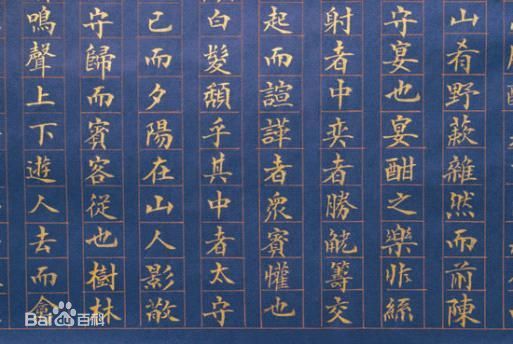 山肴野蔌雜然而前陳
守宴也宴酣之樂非絲
射者中奕者勝觥籌交
起而諠譁者衆賓懽也
白髮頹乎其中者太守
已而夕陽在山人影散
守歸而賓客從也樹林
鳴聲上下遊人去而禽
Bai百科